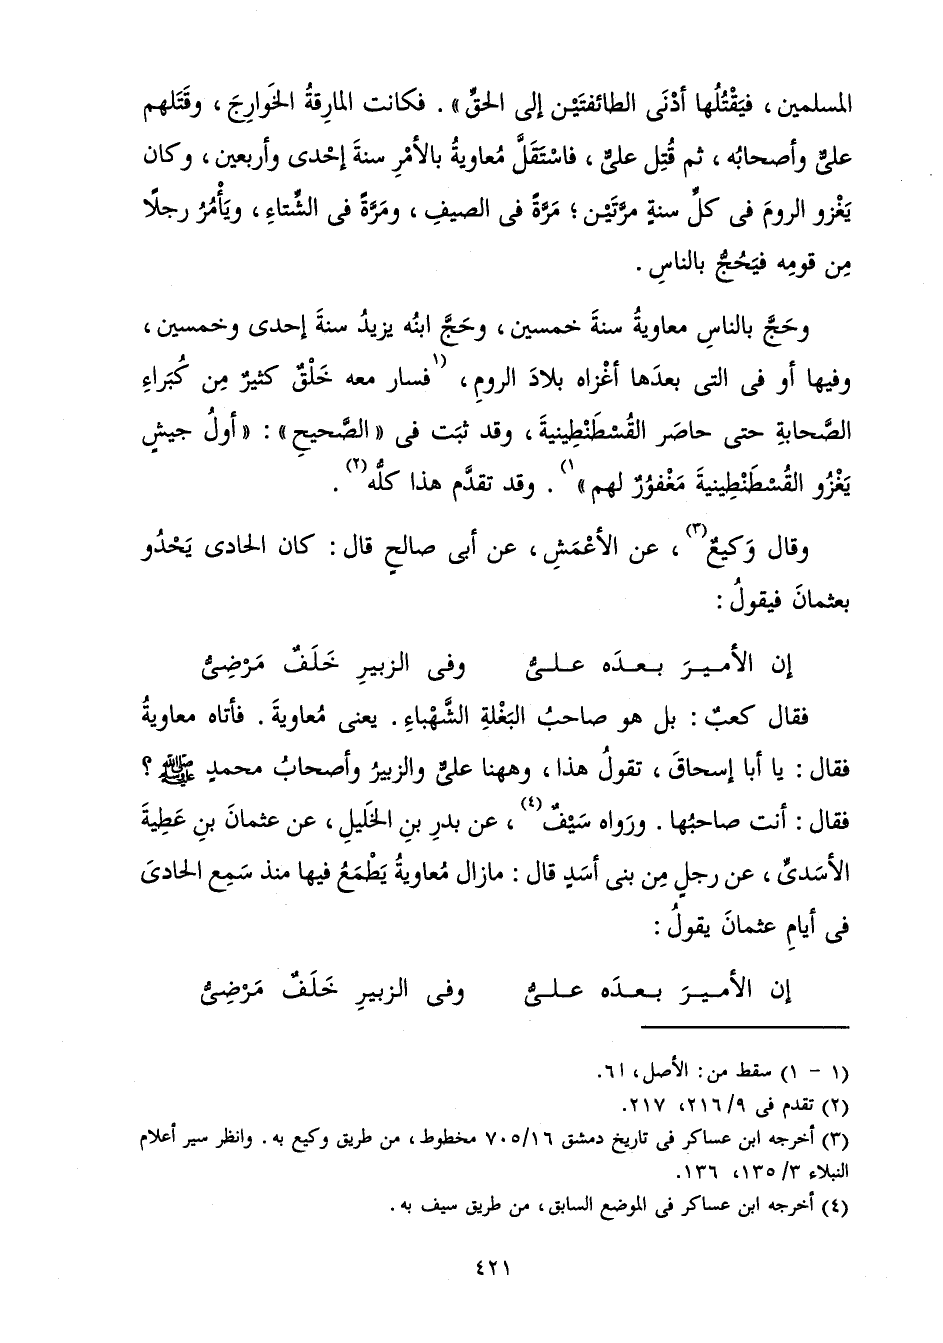 المسلمين ، فيَقْتُلُها أدْنَى الطائفتَيْن إلى الحقِّ » . فكانت المارِقةُ الخَوارِجَ ، وقَتَلهم
علىٌّ وأصحابُه ، ثم قُتِل علىٌّ ، فاسْتَقَلَّ مُعاويةُ بالأمْرِ سنةَ إحْدى وأربعين ، وكان
يَغْزو الرومَ فى كلِّ سنةٍ مرَّتَيْن ؛ مَرَّةً فى الصيفِ ، ومَرَّةً فى الشِّتاءِ ، ويَأْمُرُ رجلًا
مِن قومِه فيَحُجُّ بالناسِ .
وحَجَّ بالناسِ معاويةُ سنةَ خمسين ، وحَجَّ ابنُه يزيدُ سنةَ إحدى وخمسين ،
وفيها أو فى التى بعدَها أغْزاه بلادَ الرومِ ، (١فسار معه خَلْقٌ كثيرٌ مِن كُبَراءِ
الصَّحابةِ حتى حاصَر القُسْطَنْطِينيةَ ، وقد ثبَت فى « الصَّحيحِ » : « أولُ جيشٍ
يَغْزُو القُسْطَنْطِينيةَ مَغْفورٌ لهم »١) . وقد تقدَّم هذا كلُّه(٢) .
وقال وَكيعٌ(٣) ، عن الأعْمَشِ ، عن أبى صالحٍ قال : كان الحادى يَحْدُو
بعثمانَ فيقولُ :
إن الأميـرَ بـعـدَه عـلـىٌّ وفى الزبيرِ خَلَفٌ مَرْضِىٌّ
فقال كعبٌ : بل هو صاحبُ البَغْلةِ الشَّهْباءِ . يعنى مُعاويةَ . فأتاه معاويةُ
فقال : يا أبا إسحاقَ ، تقولُ هذا ، وههنا علىٌّ والزبيرُ وأصحابُ محمدٍ ﷺ ؟
فقال : أنت صاحبُها . ورَواه سَيْفٌ(٤) ، عن بدرِ بنِ الخَليلِ ، عن عثمانَ بنِ عَطِيةَ
الأسَدىِّ ، عن رجلٍ مِن بنى أسَدٍ قال : مازال مُعاويةُ يَطْمَعُ فيها منذ سَمِع الحادىَ
فى أيامِ عثمانَ يقولُ :
إن الأميـرَ بـعـدَه عـلـىٌّ وفى الزبيرِ خَلَفٌ مَرْضِىٌّ
(١ - ١) سقط من : الأصل ، ٦١.
(٢) تقدم فى ٢١٦/٩، ٢١٧.
(٣) أخرجه ابن عساكر فى تاريخ دمشق ٧٠٥/١٦ مخطوط ، من طريق وكيع به . وانظر سير أعلام
النبلاء ١٣٥/٣، ١٣٦.
(٤) أخرجه ابن عساكر فى الموضع السابق ، من طريق سيف به .
٤٢١